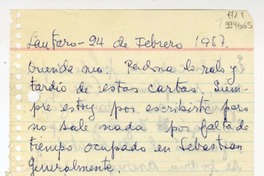 Lautaro - 24 de Febrero 1987.
Querida nu: Perdona lo ralo y
tardío de estas cartas. Siem-
pre estoy por escribirte pero
no sale nada por falta de
tiempo ocupado en Sebastian
Generalmente